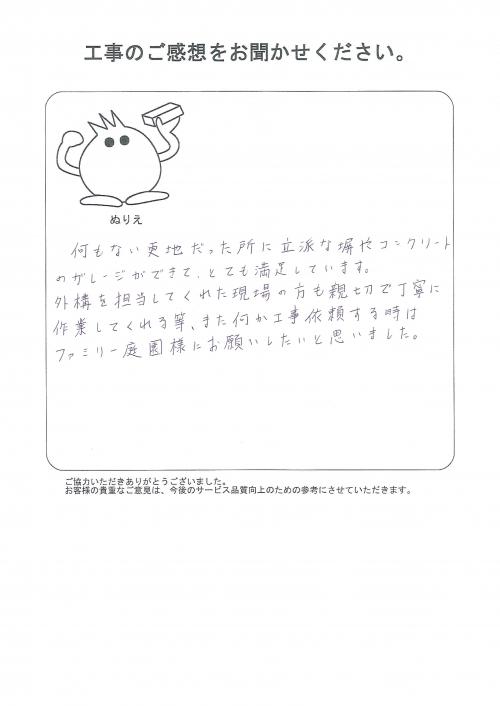 工事のご感想をお聞かせください。
ぬりえ
何もない更地だった所に立派な塀やコンクリート
のガレージができて、とても満足しています。
外構を担当してくれた現場の方も親切で丁寧に
作業してくれる等、また何か工事依頼する時は
ファミリー庭園様にお願いしたいと思いました。
ご協力いただきありがとうございました。
お客様の貴重なご意見は、今後のサービス品質向上のための参考にさせていただきます。